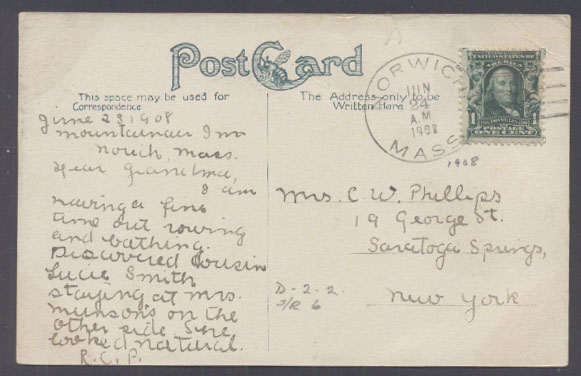 Post Card
This space may be used for
Correspondence
The Address only to be
Written Here
NORWICH
JUN
24
A.M
1907
MASS
1908
UNITED STATES OF AMERICA
1 1
POSTAGE ONE CENT
June 23, 1908
Mountainair Inn
North, Mass.
Dear Grandma,
I am
having a fine
time out rowing
and bathing.
Discovered Cousin
Lucie Smith
staying at Mrs.
Munsons on the
other side She
looked natural.
R.C.P.
Mrs. C. W. Phillips
19 George St.
Saratoga Springs,
New York
D-2.2.
S/R 6